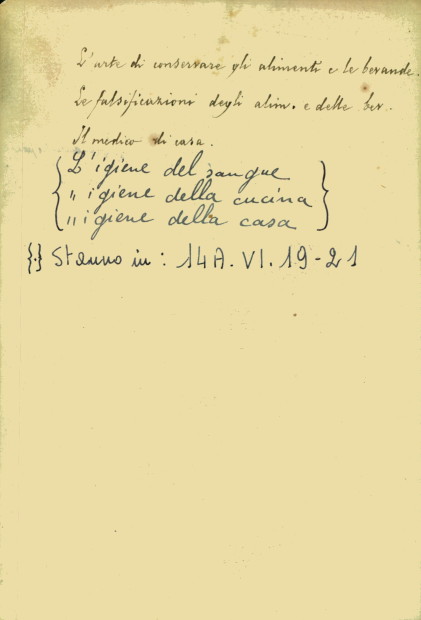 L'arte di conservare gli alimenti e le bevande.
Le falsificazioni degli alim. e delle bev.
Il medico di casa.
{ L'igiene del sangue
" igiene della cucina
" igiene della casa }
{·} Stanno in : 14A. VI. 19-21